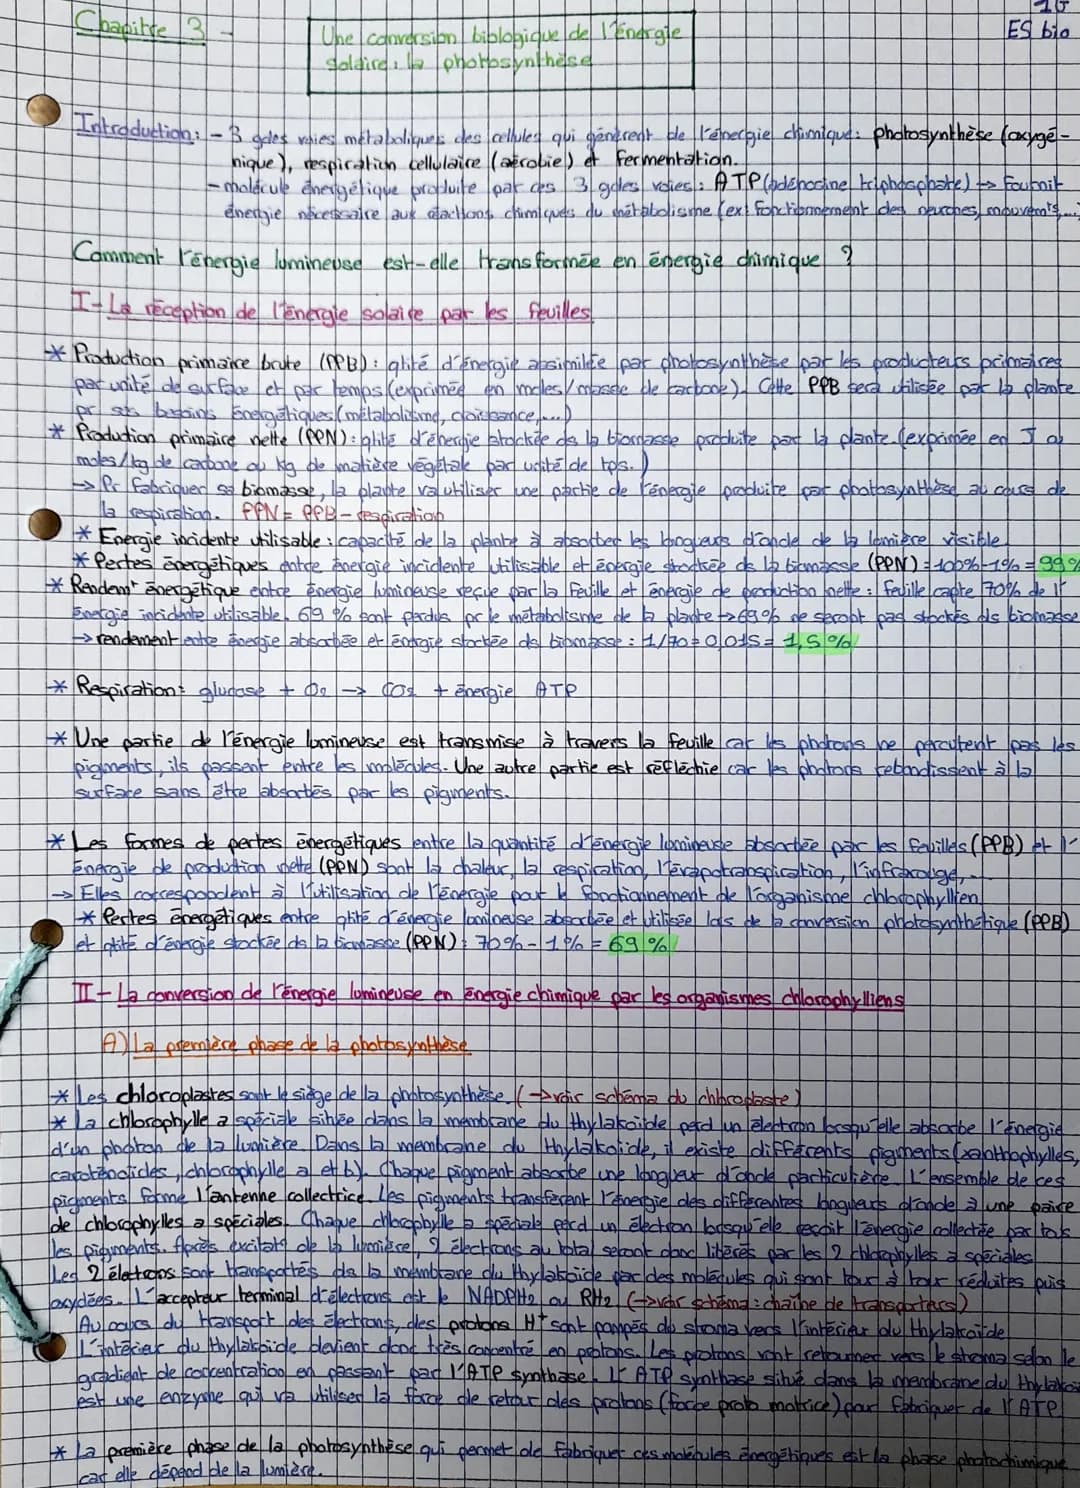 Chapitre 3 -
1G
ES bio
Une conversion biologique de l'énergie
solaire : la photosynthèse
Introduction : - 3 gdes voies métaboliques des cellules qui génèrent de l'énergie chimique : photosynthèse (oxygé-
nique), respiration cellulaire (aérobie) et fermentation.
- molécule énergétique produite par ces 3 gdes voies : ATP (adénosine triphosphate) → fournit
énergie nécessaire aux réactions chimiques du métabolisme (ex : fonctionnement des neurones, mouvemts, ...)
Comment l'énergie lumineuse est-elle transformée en énergie chimique ?
I - La réception de l'énergie solaire par les feuilles
* Production primaire brute (PPB) : qtité d'énergie assimilée par photosynthèse par les producteurs primaires
par unité de surface et par temps (exprimée en moles/masse de carbone). Cette PPB sera utilisée par la plante
pr ses besoins énergétiques (métabolisme, croissance, ...)
* Production primaire nette (PPN) : qtité d'énergie stockée ds la biomasse produite par la plante (exprimée en J ou
moles/kg de carbone ou kg de matière végétale par unité de tps.)
→ Pr fabriquer sa biomasse, la plante va utiliser une partie de l'énergie produite par photosynthèse au cours de
la respiration. PPN = PPB - respiration
* Energie incidente utilisable : capacité de la plante à absorber les longueurs d'onde de la lumière visible.
* Pertes énergétiques entre énergie incidente utilisable et énergie stockée ds la biomasse (PPN) = 100% - 1% = 99%
* Rendemt énergétique entre énergie lumineuse reçue par la feuille et énergie de production nette : feuille capte 70% de l'
énergie incidente utilisable. 69 % sont perdus pr le métabolisme de la plante → 69% ne seront pas stockés ds biomasse
→ rendement entre énergie absorbée et énergie stockée ds biomasse : 1/70 = 0,015 = 1,5 %
* Respiration : glucose + O2 → CO2 + énergie ATP
* Une partie de l'énergie lumineuse est transmise à travers la feuille car les photons ne percutent pas les
pigments, ils passent entre les molécules. Une autre partie est réfléchie car les photons rebondissent à la
surface sans être absorbés par les pigments.
* Les formes de pertes énergétiques entre la quantité d'énergie lumineuse absorbée par les feuilles (PPB) et l'
énergie de production nette (PPN) sont la chaleur, la respiration, l'évapotranspiration, l'infrarouge, ...
→ Elles correspondent à l'utilisation de l'énergie pour le fonctionnement de l'organisme chlorophyllien
* Pertes énergétiques entre qtité d'énergie lumineuse absorbée et utilisée lors de la conversion photosynthétique (PPB)
et qtité d'énergie stockée ds la biomasse (PPN) : 70% - 1% = 69 %
II - La conversion de l'énergie lumineuse en énergie chimique par les organismes chlorophylliens
A) La première phase de la photosynthèse
* Les chloroplastes sont le siège de la photosynthèse. (→ voir schéma du chloroplaste)
* La chlorophylle a spéciale située dans la membrane du thylakoïde perd un électron lorsqu'elle absorbe l'énergie
d'un photon de la lumière. Dans la membrane du thylakoïde, il existe différents pigments (xanthophylles,
caroténoïdes, chlorophylle a et b). Chaque pigment absorbe une longueur d'onde particulière. L'ensemble de ces
pigments forme l'antenne collectrice. Les pigments transfèrent l'énergie des différentes longueurs d'onde à une paire
de chlorophylles a spéciales. Chaque chlorophylle a spéciale perd un électron lorsqu'elle reçoit l'énergie collectée par tous
les pigments. Après excitat° de la lumière, 2 électrons au total seront donc libérés par les 2 chlorophylles a spéciales
Les 2 électrons sont transportés ds la membrane du thylakoïde par des molécules qui sont tour à tour réduites puis
oxydées. L'accepteur terminal d'électrons est le NADPH2 ou RH2 (→ voir schéma : chaîne de transporteurs)
Au cours du transport des électrons, des protons H+ sont pompés du stroma vers l'intérieur du thylakoïde
L'intérieur du thylakoïde devient donc très concentré en protons. Les protons vont retourner vers le stroma selon le
gradient de concentration en passant par l'ATP synthase. L'ATP synthase située dans la membrane du thylakoï
est une enzyme qui va utiliser la force de retour des protons (force proto motrice) pour fabriquer de l'ATP
* La première phase de la photosynthèse qui permet de fabriquer ces molécules énergétiques est la phase photochimique
car elle dépend de la lumière.